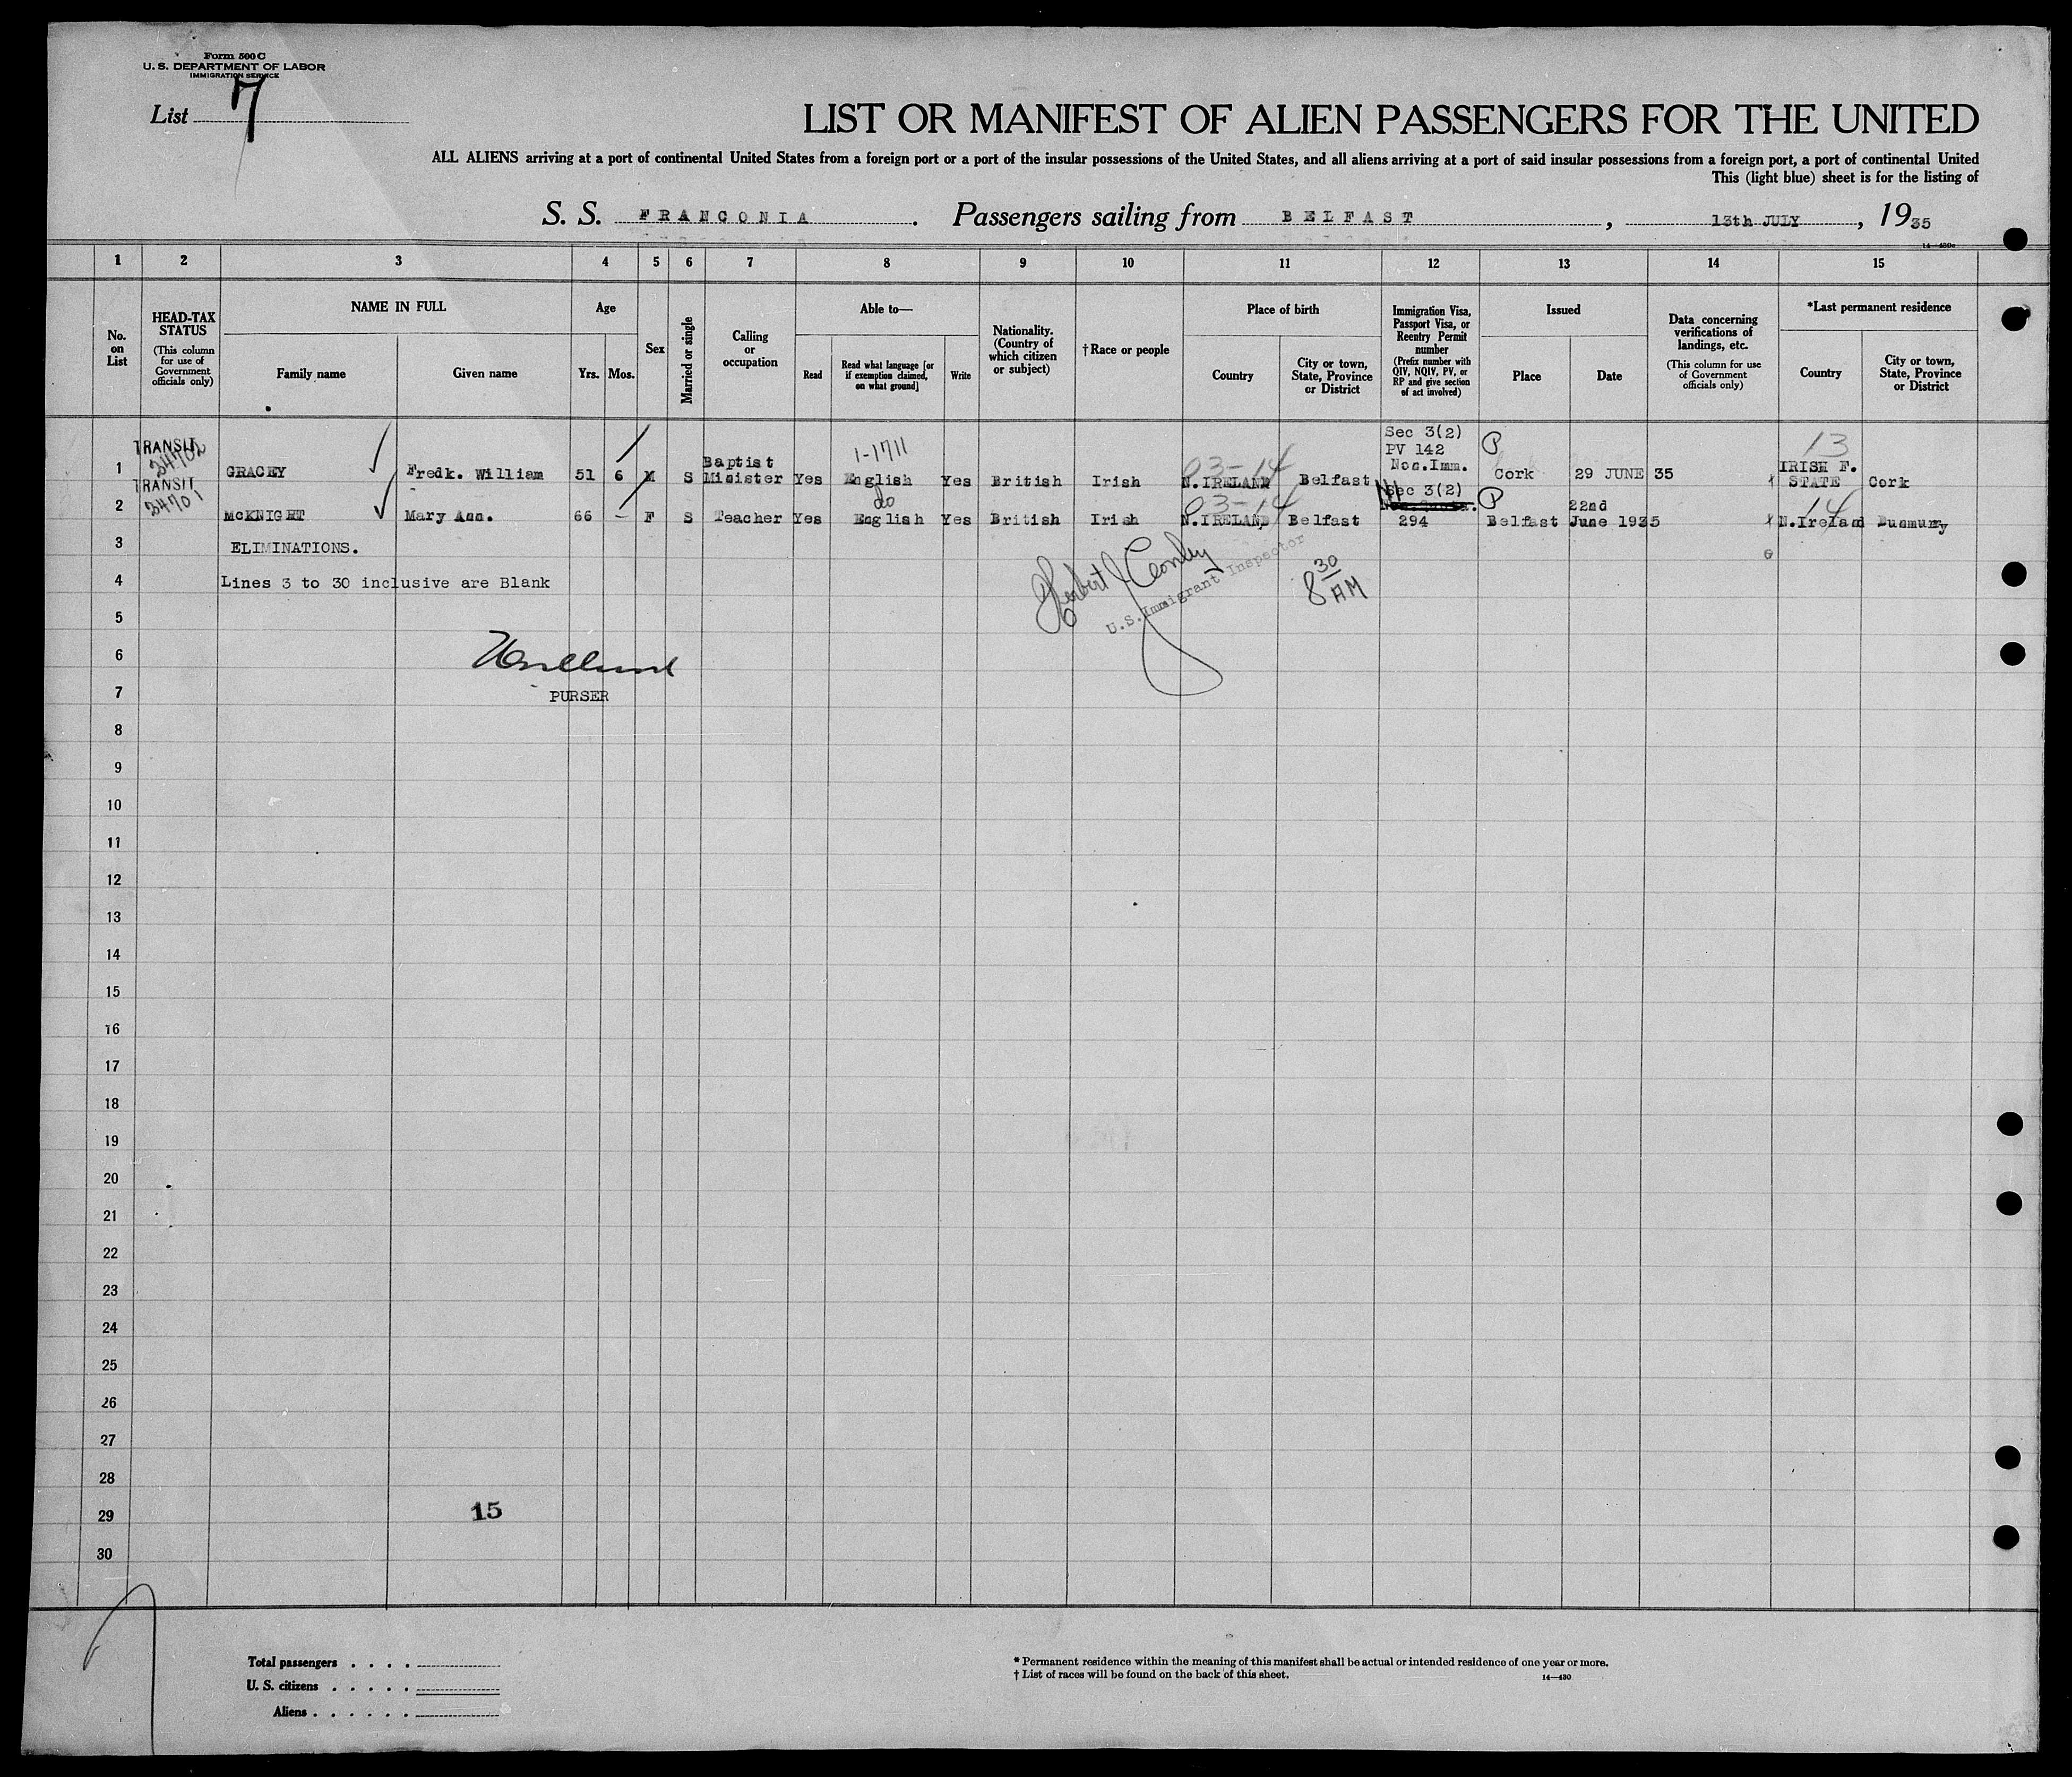 Form 500 C
U. S. DEPARTMENT OF LABOR
IMMIGRATION SERVICE
List 7
LIST OR MANIFEST OF ALIEN PASSENGERS FOR THE UNITED
ALL ALIENS arriving at a port of continental United States from a foreign port or a port of the insular possessions of the United States, and all aliens arriving at a port of said insular possessions from a foreign port, a port of continental United
This (light blue) sheet is for the listing of
S. S. FRANCONIA. Passengers sailing from BELFAST, 13th JULY, 1935
14—430c
1 2 3 4 5 6 7 8 9 10 11 12 13 14 15
No. on List
HEAD-TAX STATUS
(This column for use of Government officials only)
NAME IN FULL
Family name
Given name
Age
Yrs. Mos.
Sex
Married or single
Calling or occupation
Able to—
Read
Read what language [or if exemption claimed, on what ground]
Write
Nationality. (Country of which citizen or subject)
†Race or people
Place of birth
Country
City or town, State, Province or District
Immigration Visa, Passport Visa, or Reentry Permit number
(Prefix number with QIV, NQIV, PV, or RP and give section of act involved)
Issued
Place
Date
Data concerning verifications of landings, etc.
(This column for use of Government officials only)
*Last permanent residence
Country
City or town, State, Province or District
1 TRANSIT 24702 GRACEY Fredk. William 51 6 M S Baptist Minister Yes 1-1711 English Yes British Irish 03-14 N.IRELAND Belfast Sec 3(2) PV 142 Non.Imm. P Cork 29 JUNE 35 13 IRISH F. STATE Cork
2 TRANSIT 24701 McKNIGHT Mary Ann. 66 - F S Teacher Yes do English Yes British Irish 03-14 N.IRELAND Belfast Sec 3(2) 294 P Belfast 22nd June 1935 14 N.Ireland Dunmurry
3 ELIMINATIONS.
4 Lines 3 to 30 inclusive are Blank
Herbert J Conley
U.S. Immigrant Inspector
8 30 AM
5
6
7 PURSER
8
9
10
11
12
13
14
15
16
17
18
19
20
21
22
23
24
25
26
27
28
29 15
30
Total passengers . . . .
U. S. citizens . . . . .
Aliens . . . . . .
* Permanent residence within the meaning of this manifest shall be actual or intended residence of one year or more.
† List of races will be found on the back of this sheet.
14—430